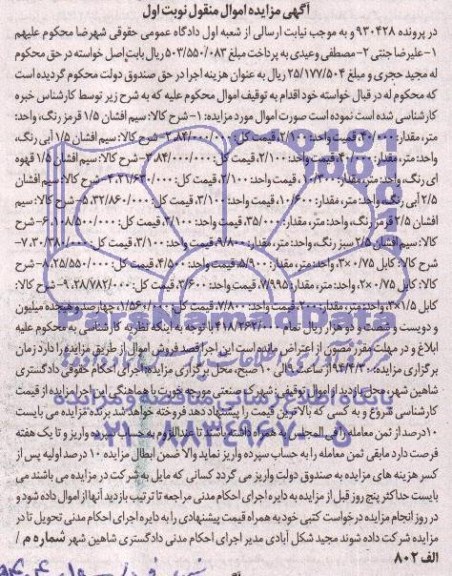 آگهی مزایده اموال منقول نوبت اول
در پرونده ۹۳۰۴۲۸ و به موجب نیابت ارسالی از شعبه اول دادگاه عمومی حقوقی شهرضا محکوم علیهم
۱-علیرضا جنتی ۲-مصطفی وعیدی به پرداخت مبلغ ۵۰۳/۵۵۰/۰۸۳ ریال بابت اصل خواسته در حق محکوم
له مجید حجری و مبلغ ۲۵/۱۷۷/۵۰۴ ریال به عنوان هزینه اجرا در حق صندوق دولت محکوم گردیده است
که محکوم له در قبال خواسته خود اقدام به توقیف اموال محکوم علیه که به شرح زیر توسط کارشناس خبره
کارشناسی شده است نموده است صورت اموال مورد مزایده: ۱-شرح کالا: سیم افشان ۱/۵ قرمز رنگ، واحد:
متر، مقدار: قیمت واحد: ۲/۱۰۰، قیمت کل: شرح کالا: سیم افشان ۱/۵ آبی رنگ،
واحد: متر، مقدار: قیمت واحد: ۲/۱۰۰، قیمت کل: شرح کالا: سیم افشان ۱/۵ قهوه
ای رنگ، واحد: متر، مقدار: قیمت واحد: قیمت کل: شرح کالا: سیم افشان
۲/۵ آبی رنگ، واحد: متر، مقدار: قیمت واحد: ۳/۱۰۰، قیمت کل: شرح کالا: سیم
افشان ۲/۵ قرمز رنگ، واحد: متر، مقدار: قیمت واحد: ۳/۱۰۰، قیمت کل: شرح
کالا: سیم افشان ۲/۵ سبز رنگ، واحد: متر، مقدار: ۹/۸۰۰، قیمت واحد: ۳/۱۰۰، قیمت کل: ۳۰/۳۸۰/۰۰۰ ۷-
شرح کالا: کابل ۳×۰/۷۵، واحد: متر، مقدار: قیمت واحد: ۴/۵۰۰، قیمت کل: ۲۵/۵۵۰/۰۰۰ ۸-شرح
کالا: کابل ۲×۰/۷۵، واحد: متر، مقدار: ۷/۹۹۵، قیمت واحد: ۳/۶۰۰، قیمت کل: ۲۸/۷۸۲/۰۰۰ ۹-شرح کالا:
کابل ۴×۱/۵، واحد: متر، مقدار: ۲۰۰، قیمت واحد: ۷/۸۰۰، قیمت کل: ۱/۵۶۰/۰۰۰، چهارصد و هیجده میلیون
و دویست و شصت و دو هزار ریال تمام ۴۱۸/۲۶۲/۰۰۰ با توجه به اینکه نظریه کارشناسی به محکوم علیه
ابلاغ و در مهلت مقرر مصون از اعتراض مانده است این اجرا قصد فروش اموال از طریق مزایده را دارد زمان
برگزاری مزایده: از ساعت ۹ الی ۱۰ صبح، محل برگزاری مزایده: اجرای احکام حقوقی دادگستری
شاهین شهر، محل بازدید از اموال توقیفی: شهرک صنعتی مورچه خورت با هماهنگی این اجرا مزایده از قیمت
کارشناسی شروع و به کسی که بالاترین قیمت را پیشنهاد دهد فروخته خواهد شد برنده مزایده می بایست
۱۰درصد از ثمن معامله را فی المجلس به همراه داشته باشد تا عندالزوم به حساب سپرده واریز و تا یک هفته
فرصت دارد مابقی ثمن معامله را به حساب سپرده واریز نماید والا ضمن ابطال مزایده ۱۰ درصد اولیه پس از
کسر هزینه های مزایده به صندوق دولت واریز می گردد کسانی که مایل به شرکت در مزایده می باشند می
بایست حداکثر پنج روز قبل از مزایده به دایره اجرای احکام مدنی مراجعه تا ترتیب بازدید آنها از اموال داده شود و
در روز انجام مزایده درخواست کتبی خود به همراه قیمت پیشنهادی را به دایره اجرای احکام مدنی تحویل تا در
مزایده شرکت داده شوند مجید شکل آبادی مدیر اجرای احکام مدنی دادگستری شاهین شهر شماره م /
الف ۸۰۲
ParsNamadData
پایگاه اطلاع رسانی مناقصه و مزایده
۰۲۱-۸۸۳۴۹۶۷۰-۵